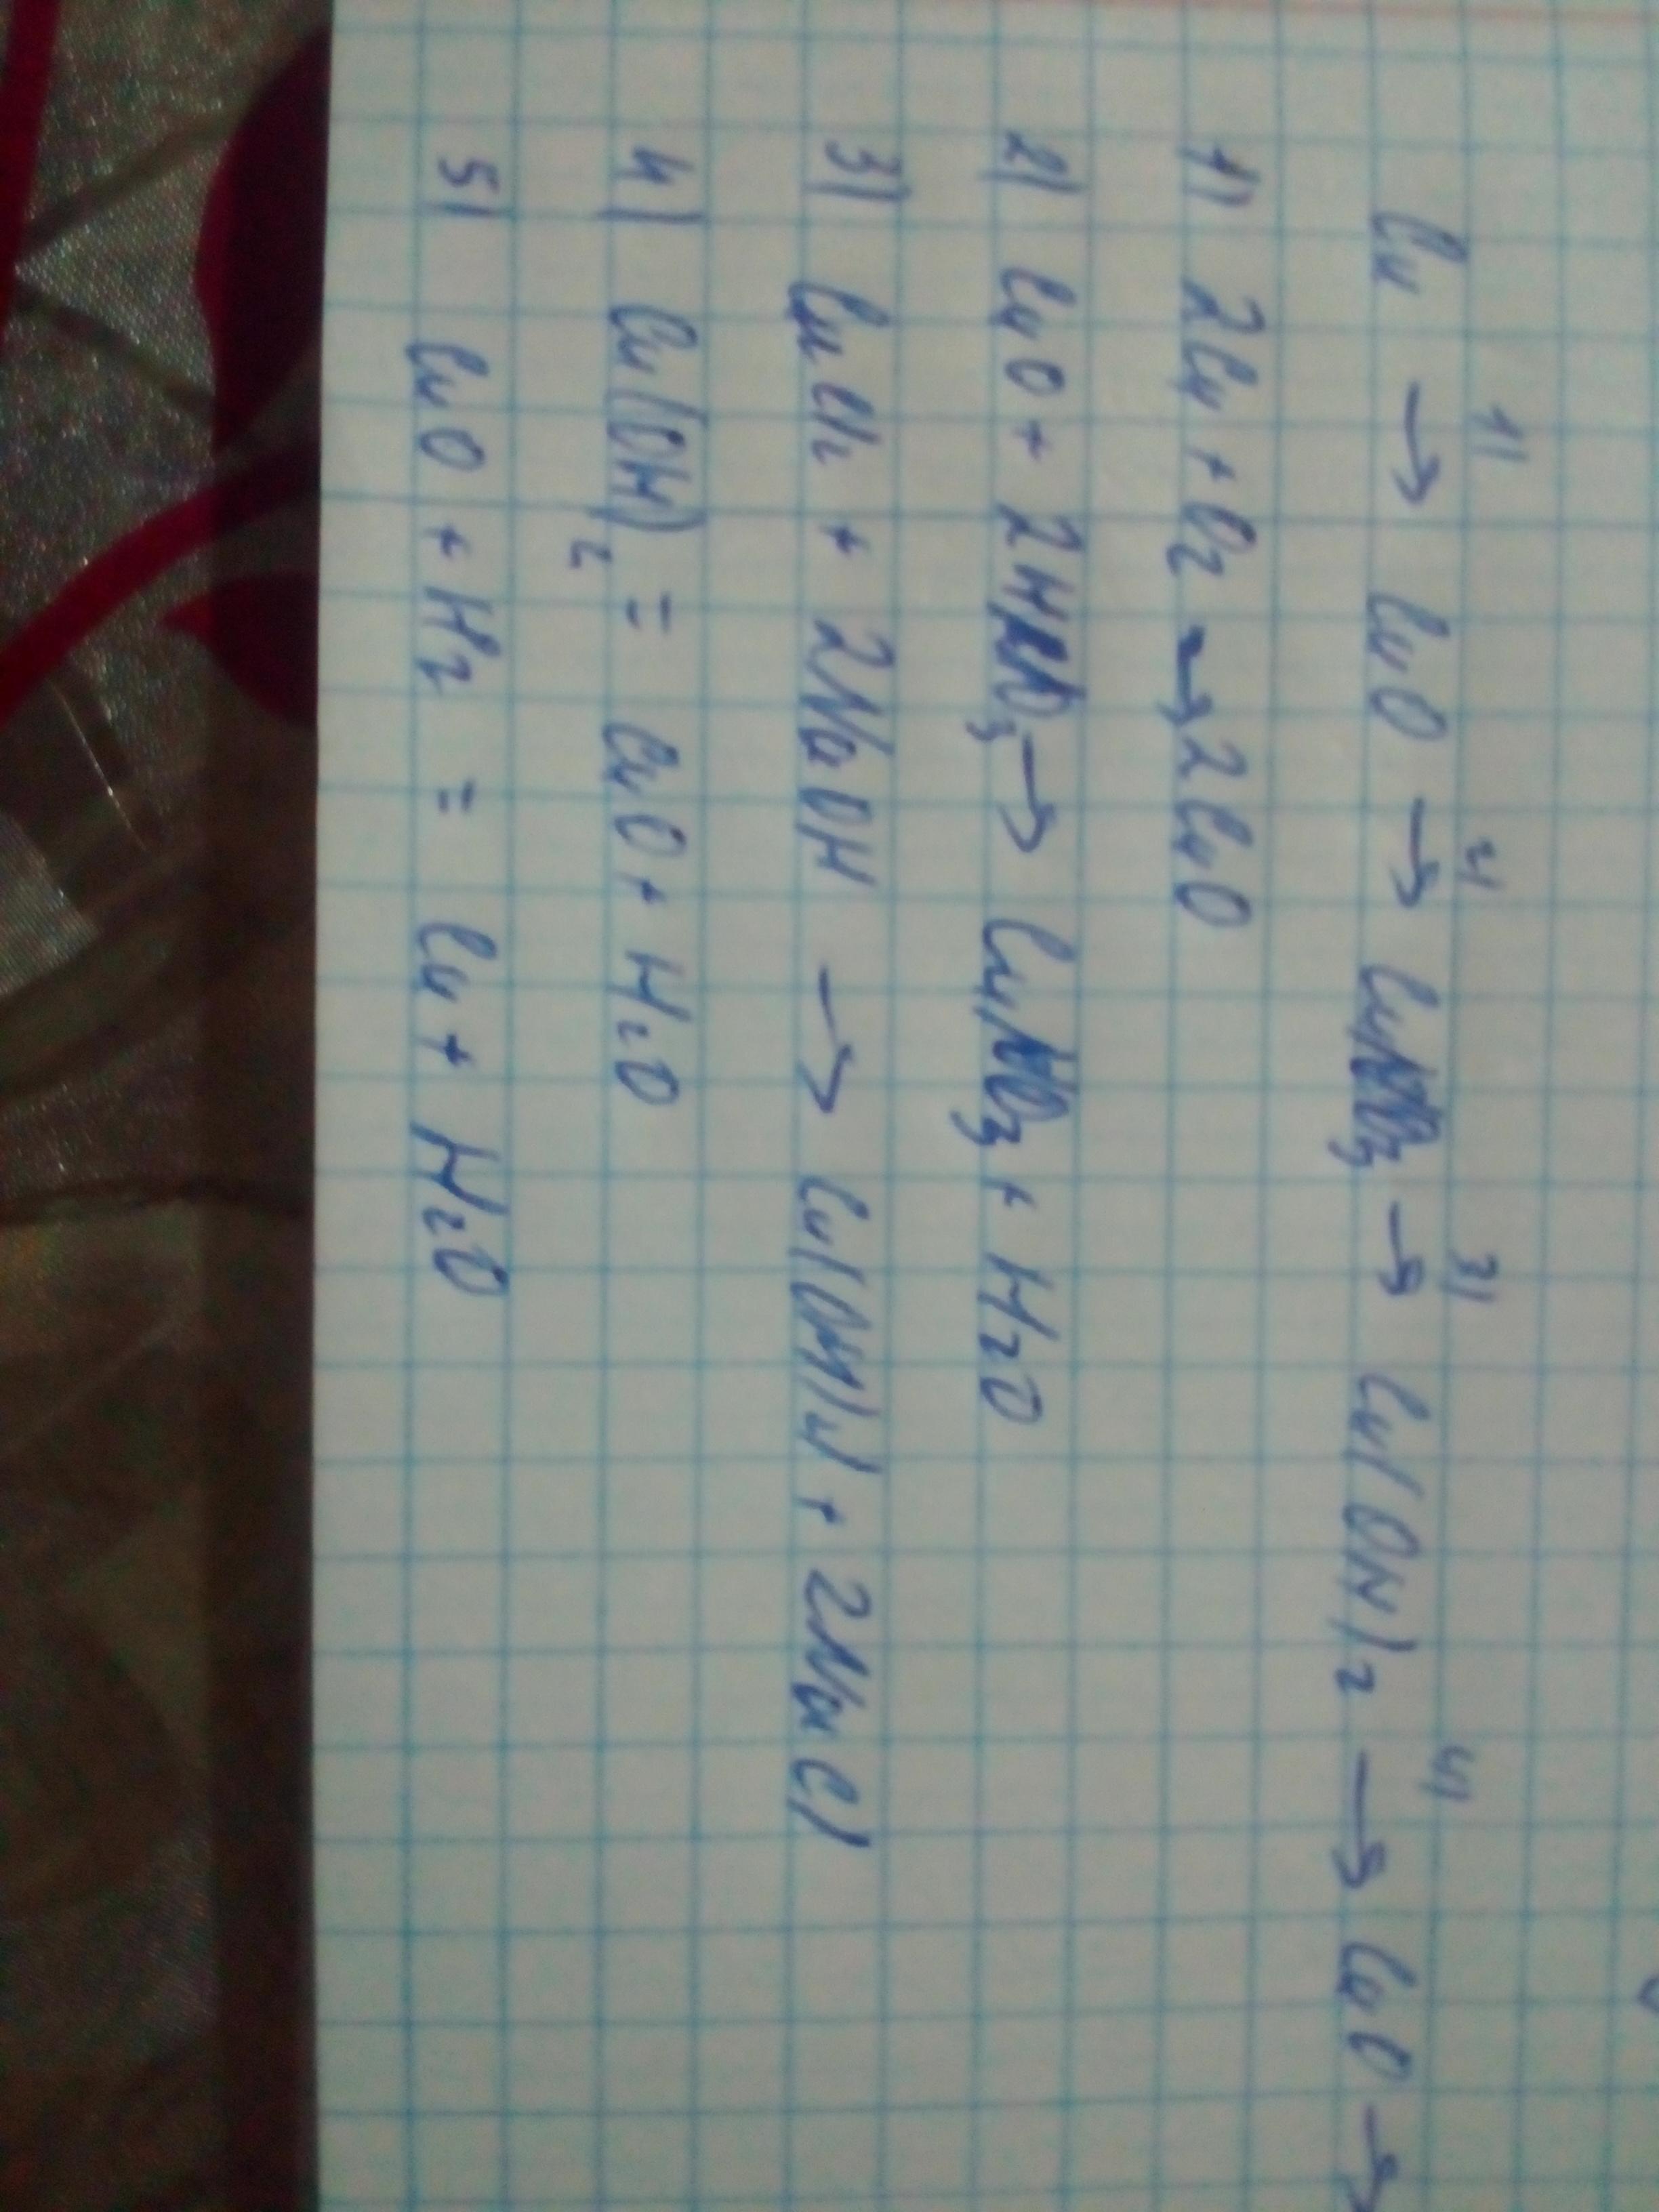 1) 2) 3) 4)
Cu → CuO → CuNO₃ → Cu(OH)₂ → CuO →
1) 2Cu + O₂ → 2CuO
2) CuO + 2HNO₃ → CuNO₃ + H₂O
3) CuCl₂ + 2NaOH → Cu(OH)₂↓ + 2NaCl
4) Cu(OH)₂ = CuO + H₂O
5) CuO + H₂ = Cu + H₂O